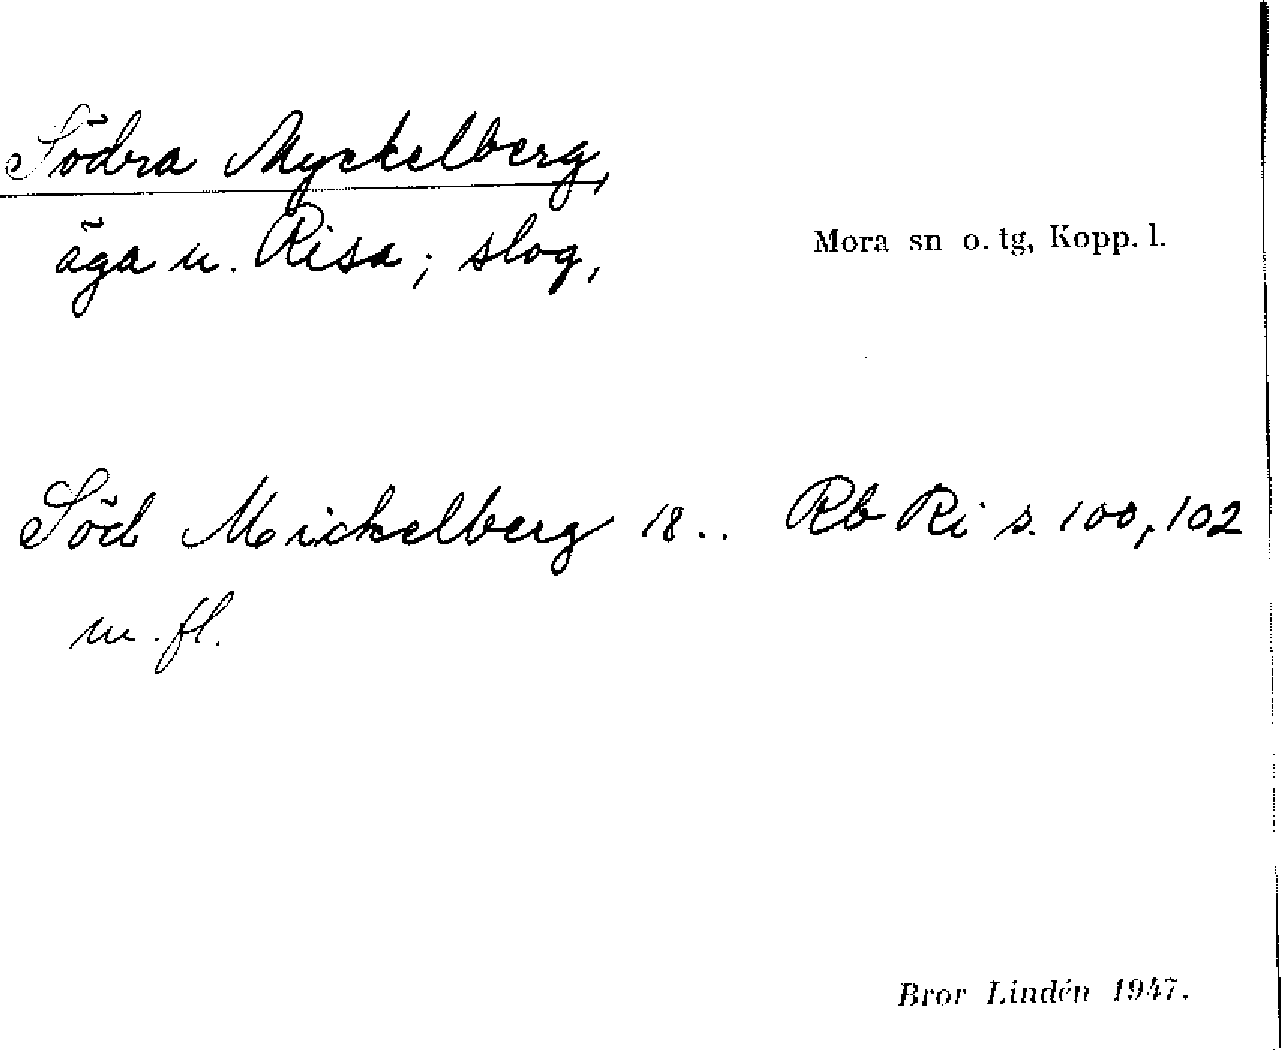 Södra Myckelberg,
äga u. Risa; slog,
Mora sn o. tg, Kopp. l.
Söd Mickelberg 18.. Rb Ri s. 100, 102
m. fl.
Bror Lindén 1947.